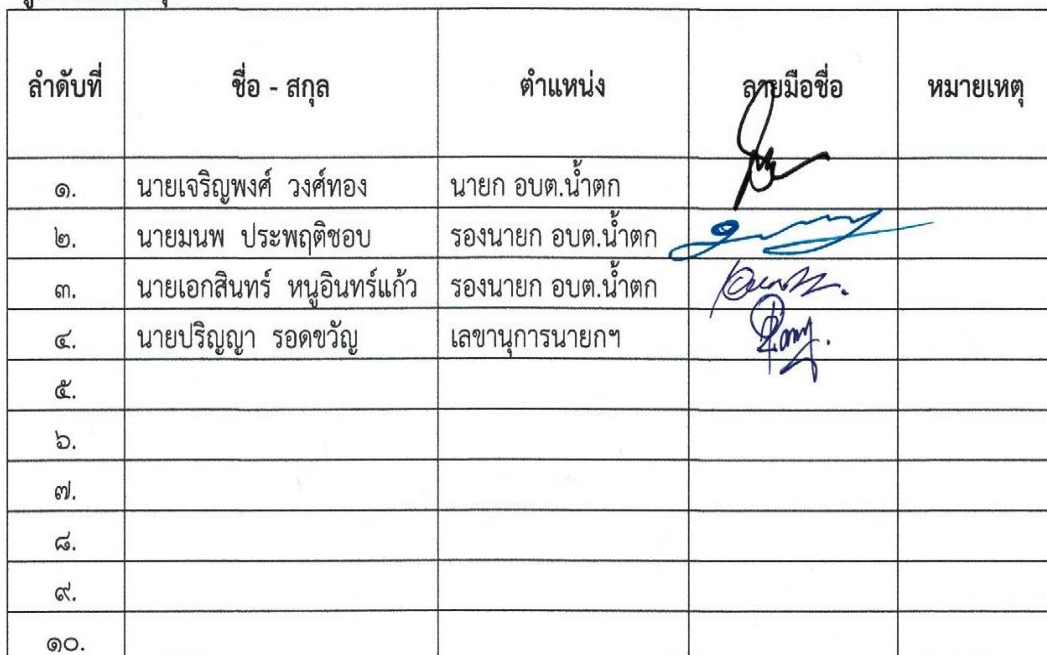 ลำดับที่ ชื่อ - สกุล ตำแหน่ง ลายมือชื่อ หมายเหตุ
๑. นายเจริญพงศ์ วงศ์ทอง นายก อบต.น้ำตก
๒. นายมนพ ประพฤติชอบ รองนายก อบต.น้ำตก
๓. นายเอกสินทร์ หนูอินทร์แก้ว รองนายก อบต.น้ำตก
๔. นายปริญญา รอดขวัญ เลขานุการนายกฯ
๕.
๖.
๗.
๘.
๙.
๑๐.